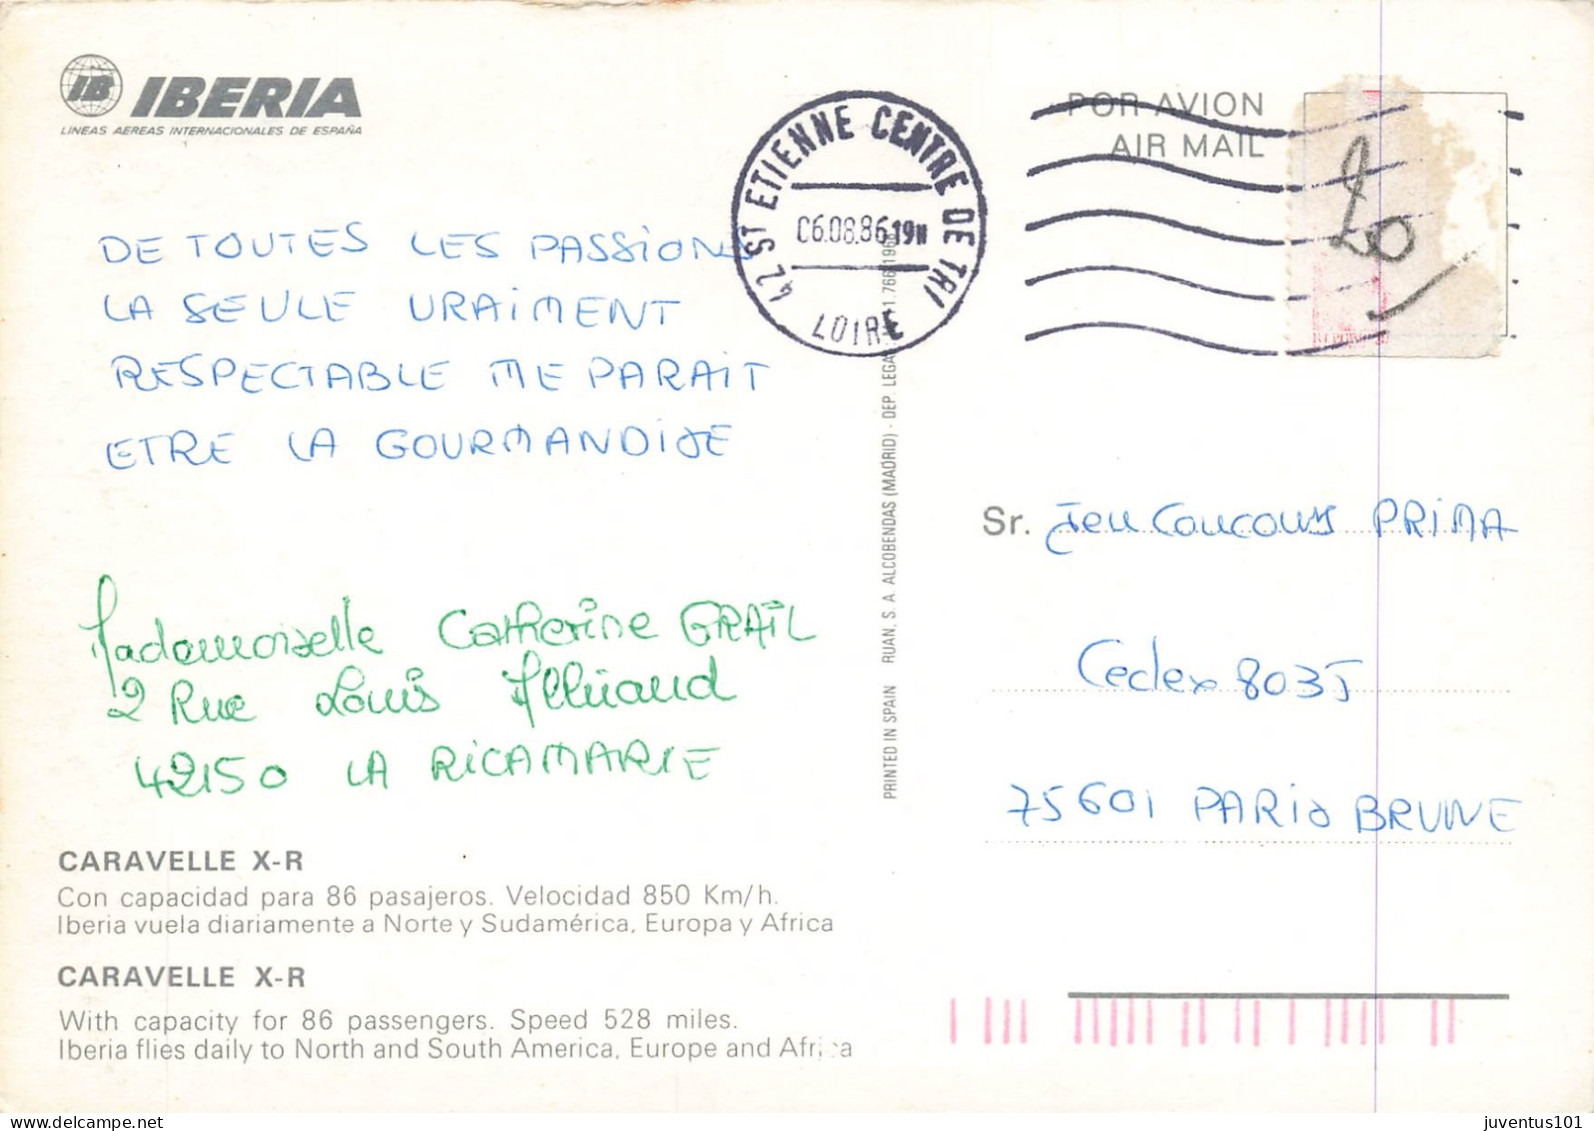 IB IBERIA
LINEAS AEREAS INTERNACIONALES DE ESPAÑA
POR AVION
AIR MAIL
42 ST ETIENNE CENTRE DE TRI
06.08.86 19H
LOIRE
20
DE TOUTES LES PASSIONS
LA SEULE VRAIMENT
RESPECTABLE ME PARAIT
ETRE LA GOURMANDISE
Mademoiselle Catherine GRAIL
2 Rue Louis
42150 LA RICAMARIE
CARAVELLE X-R
Con capacidad para 86 pasajeros. Velocidad 850 Km/h.
Iberia vuela diariamente a Norte y Sudamérica, Europa y Africa
CARAVELLE X-R
With capacity for 86 passengers. Speed 528 miles.
Iberia flies daily to North and South America, Europe and Africa
PRINTED IN SPAIN RUAN, S. A. ALCOBENDAS (MADRID) - DEP. LEGAL
Sr. Jeu Concours PRIMA
Cedex 8035
75601 PARIS BRUNE
juventus101